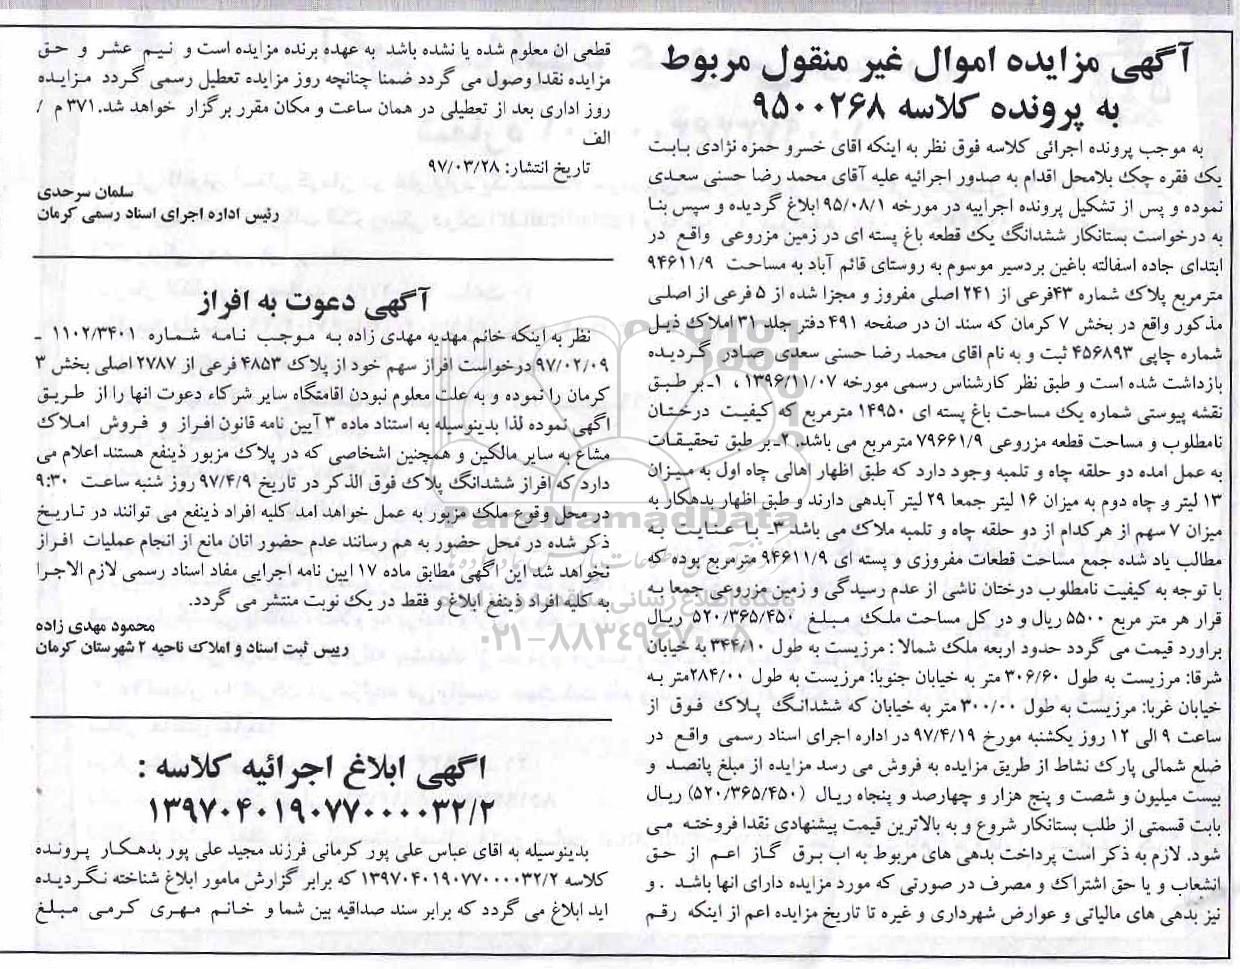 آگهی مزایده اموال غیر منقول مربوط
به پرونده کلاسه ۹۵۰۰۲۶۸
به موجب پرونده اجرائی کلاسه فوق نظر به اینکه اقای خسرو حمزه نژادی بابت
یک فقره چک بلامحل اقدام به صدور اجرائیه علیه آقای محمد رضا حسنی سعدی
نموده و پس از تشکیل پرونده اجراییه در مورخه ۹۵/۰۸/۱ ابلاغ گردیده و سپس بنا
به درخواست بستانکار ششدانگ یک قطعه باغ پسته ای در زمین مزروعی واقع در
ابتدای جاده اسفالته باغین بردسیر موسوم به روستای قائم آباد به مساحت ۹۴۶۱۱/۹
مترمربع پلاک شماره ۴۳فرعی از ۲۴۱ اصلی مفروز و مجزا شده از ۵ فرعی از اصلی
مذکور واقع در بخش ۷ کرمان که سند ان در صفحه ۴۹۱ دفتر جلد ۳۱ املاک ذیل
شماره چاپی ۴۵۶۸۹۳ ثبت و به نام اقای محمد رضا حسنی سعدی صادر گردیده
بازداشت شده است و طبق نظر کارشناس رسمی مورخه ۱۳۹۶/۱۱/۰۷ ، ۱ـ بر طبق
نقشه پیوستی شماره یک مساحت باغ پسته ای ۱۴۹۵۰ مترمربع که کیفیت درختان
نامطلوب و مساحت قطعه مزروعی ۷۹۶۶۱/۹ مترمربع می باشد. ۲ـ بر طبق تحقیقات
به عمل امده دو حلقه چاه و تلمبه وجود دارد که طبق اظهار اهالی چاه اول به میزان
۱۳ لیتر و چاه دوم به میزان ۱۶ لیتر جمعا ۲۹ لیتر آبدهی دارند و طبق اظهار بدهکار به
میزان ۷ سهم از هرکدام از دو حلقه چاه و تلمبه ملاک می باشد ۳ـ با عنایت به
مطالب یاد شده جمع مساحت قطعات مفروزی و پسته ای ۹۴۶۱۱/۹ مترمربع بوده که
با توجه به کیفیت نامطلوب درختان ناشی از عدم رسیدگی و زمین مزروعی جمعا به
قرار هر متر مربع ۵۵۰۰ ریال و در کل مساحت ملک مبلغ ۵۲۰/۳۶۵/۴۵۰ ریال
براورد قیمت می گردد حدود اربعه ملک شمالا : مرزیست به طول ۳۴۴/۱۰ به خیابان
شرقا: مرزیست به طول ۳۰۶/۶۰ متر به خیابان جنوبا: مرزیست به طول ۲۸۴/۰۰متر به
خیابان غربا: مرزیست به طول ۳۰۰/۰۰ متر به خیابان که ششدانگ پلاک فوق از
ساعت ۹ الی ۱۲ روز یکشنبه مورخ ۹۷/۴/۱۹ در اداره اجرای اسناد رسمی واقع در
ضلع شمالی پارک نشاط از طریق مزایده به فروش می رسد مزایده از مبلغ پانصد و
بیست میلیون و شصت و پنج هزار و چهارصد و پنجاه ریال (۵۲۰/۳۶۵/۴۵۰) ریال
بابت قسمتی از طلب بستانکار شروع و به بالاترین قیمت پیشنهادی نقدا فروخته می
شود. لازم به ذکر است پرداخت بدهی های مربوط به اب برق گاز اعم از حق
انشعاب و یا حق اشتراک و مصرف در صورتی که مورد مزایده دارای انها باشد . و
نیز بدهی های مالیاتی و عوارض شهرداری و غیره تا تاریخ مزایده اعم از اینکه رقم
قطعی ان معلوم شده یا نشده باشد به عهده برنده مزایده است و نیم عشر و حق
مزایده نقدا وصول می گردد ضمنا چنانچه روز مزایده تعطیل رسمی گردد مزایده
روز اداری بعد از تعطیلی در همان ساعت و مکان مقرر برگزار خواهد شد.۳۷۱ م /
الف
تاریخ انتشار: ۹۷/۰۳/۲۸
سلمان سرحدی
رئیس اداره اجرای اسناد رسمی کرمان
آگهی دعوت به افراز
نظر به اینکه خانم مهدیه مهدی زاده به موجب نامه شماره ۱۱۰۲/۳۴۰۱ ـ
۹۷/۰۲/۰۹ درخواست افراز سهم خود از پلاک ۴۸۵۳ فرعی از ۲۷۸۷ اصلی بخش ۳
کرمان را نموده و به علت معلوم نبودن اقامتگاه سایر شرکاء دعوت انها را از طریق
اگهی نموده لذا بدینوسیله به استناد ماده ۳ آیین نامه قانون افراز و فروش املاک
مشاع به سایر مالکین و همچنین اشخاصی که در پلاک مزبور ذینفع هستند اعلام می
دارد که افراز ششدانگ پلاک فوق الذکر در تاریخ ۹۷/۴/۹ روز شنبه ساعت ۹:۳۰
در محل وقوع ملک مزبور به عمل خواهد امد کلیه افراد ذینفع می توانند در تاریخ
ذکر شده در محل حضور به هم رسانند عدم حضور انان مانع از انجام عملیات افراز
نخواهد شد این آگهی مطابق ماده ۱۷ ایین نامه اجرایی مفاد اسناد رسمی لازم الاجرا
به کلیه افراد ذینفع ابلاغ و فقط در یک نوبت منتشر می گردد.
محمود مهدی زاده
رییس ثبت اسناد و املاک ناحیه ۲ شهرستان کرمان
اگهی ابلاغ اجرائیه کلاسه :
۱۳۹۷۰۴۰۱۹۰۷۷۰۰۰۰۳۲/۲
بدینوسیله به اقای عباس علی پور کرمانی فرزند مجید علی پور بدهکار پرونده
کلاسه ۱۳۹۷۰۴۰۱۹۰۷۷۰۰۰۰۳۲/۲ که برابر گزارش مامور ابلاغ شناخته نگردیده
اید ابلاغ می گردد که برابر سند صداقیه بین شما و خانم مهری کرمی مبلغ
ParsNamadData
پایگاه اطلاع رسانی
۰۲۱-۸۸۳۴۹۶۷۰-۵